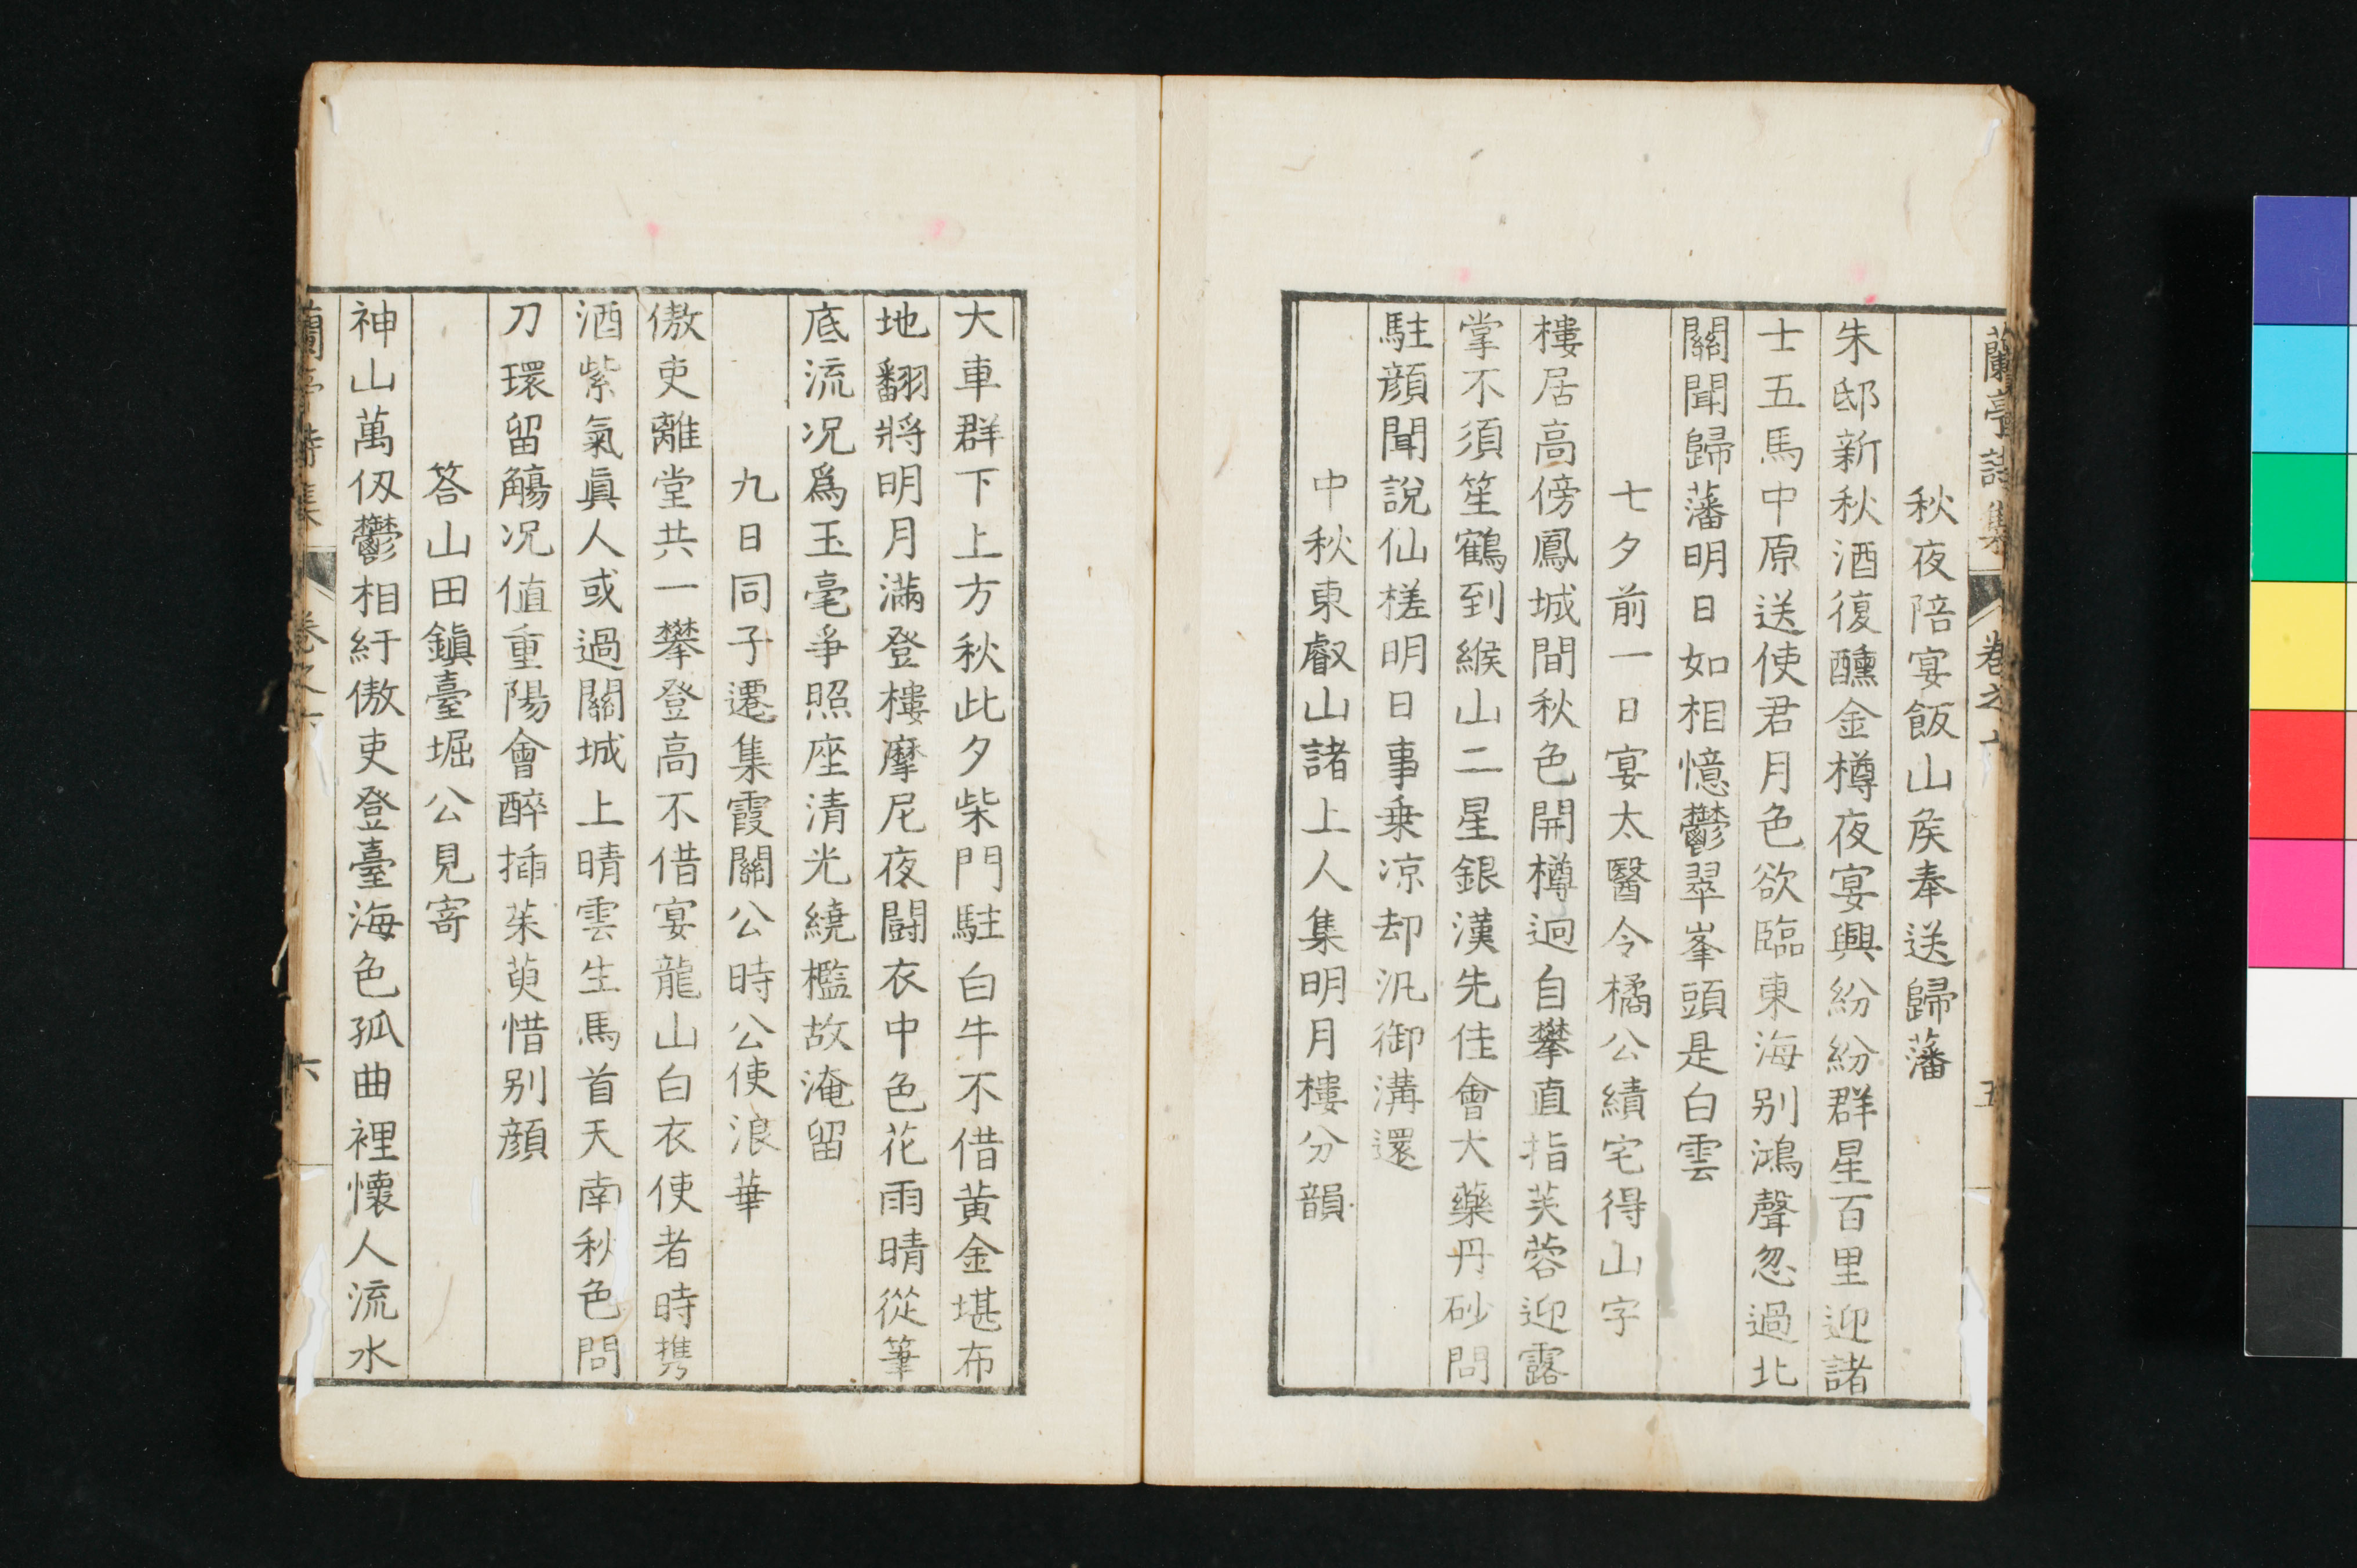 蘭亭詩集
卷之
五
秋夜陪宴飯山矦奉送歸藩
朱邸新秋酒復醺金樽夜宴興紛紛群星百里迎諸
士五馬中原送使君月色欲臨東海别鴻聲忽過北
關聞歸藩明日如相憶鬱翠峯頭是白雲
七夕前一日宴太醫令橘公績宅得山字
樓居高傍鳳城間秋色開樽迥自攀直指芙蓉迎露
掌不須笙鶴到緱山二星銀漢先佳會大藥丹砂問
駐顔聞說仙槎明日事乗凉却汎御溝還
中秋東叡山諸上人集明月樓分韻
大車群下上方秋此夕柴門駐白牛不借黄金堪布
地翻將明月滿登樓摩尼夜闘衣中色花雨晴從筆
底流况爲玉毫爭照座清光繞檻故淹留
九日同子遷集霞關公時公使浪華
傲吏離堂共一攀登高不借宴龍山白衣使者時携
酒紫氣眞人或過關城上晴雲生馬首天南秋色問
刀環留觴况值重陽會醉插茱萸惜别顔
答山田鎭臺堀公見寄
神山萬仭鬱相紆傲吏登臺海色孤曲裡懷人流水
蘭亭詩集
卷之
六